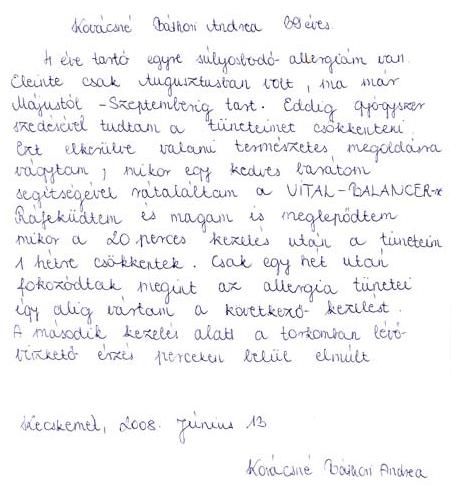 Kovácsné Báthori Andrea 39 éves.
4 éve tartó egyre súlyosbodó allergiám van.
Eleinte csak Augusztusban volt, ma már
Májustól - Szeptemberig tart. Eddig gyógyszer
szedésével tudtam a tüneteimet csökkenteni
Ezt elkerülve valami természetes megoldásra
vágytam, mikor egy kedves barátom
segítségével rátaláltam a VITAL-BALANCER-re
Ráfeküdtem és magam is meglepődtem
mikor a 20 perces kezelés után a tüneteim
1 hétre csökkentek. Csak egy hét után
fokozódtak megint az allergia tünetei
így alig vártam a következő kezelést.
A második kezelés alatt a torkomban lévő
viszkető érzés perceken belül elmúlt
Kecskemét, 2008. Június 13
Kovácsné Báthori Andrea